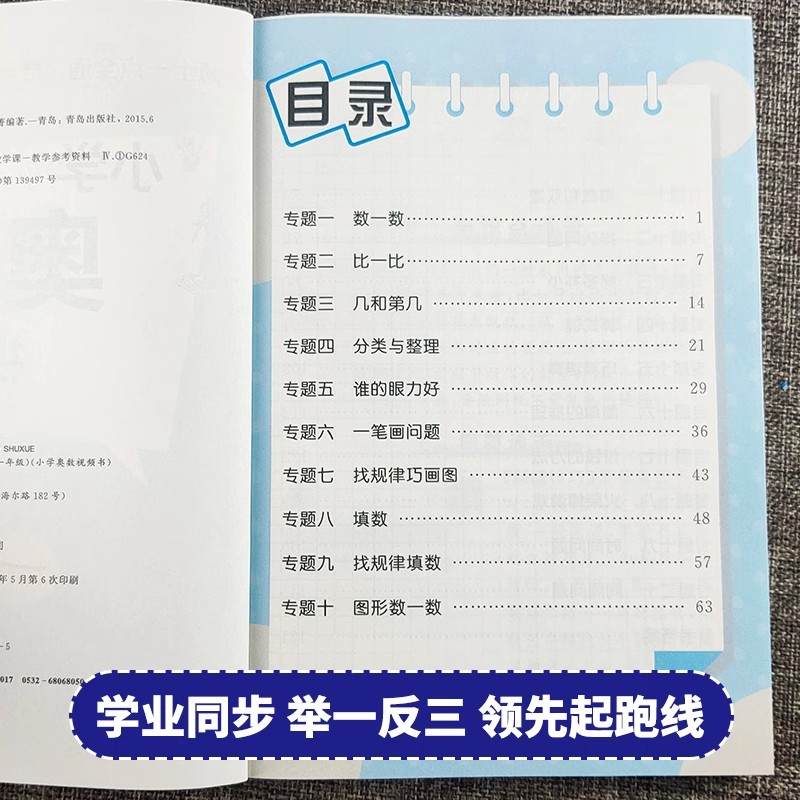 著编著.—青岛：青岛出版社，2015.6
学课—教学参考资料 Ⅳ.①G624
第 139497 号
SHUXUE
一年级）（小学奥数视频书）
海尔路 182 号）
年 5 月第 6 次印刷
-5
017 0532-68068050
目录
专题一 数一数 1
专题二 比一比 7
专题三 几和第几 14
专题四 分类与整理 21
专题五 谁的眼力好 29
专题六 一笔画问题 36
专题七 找规律巧画图 43
专题八 填数 48
专题九 找规律填数 57
专题十 图形数一数 63
学业同步 举一反三 领先起跑线